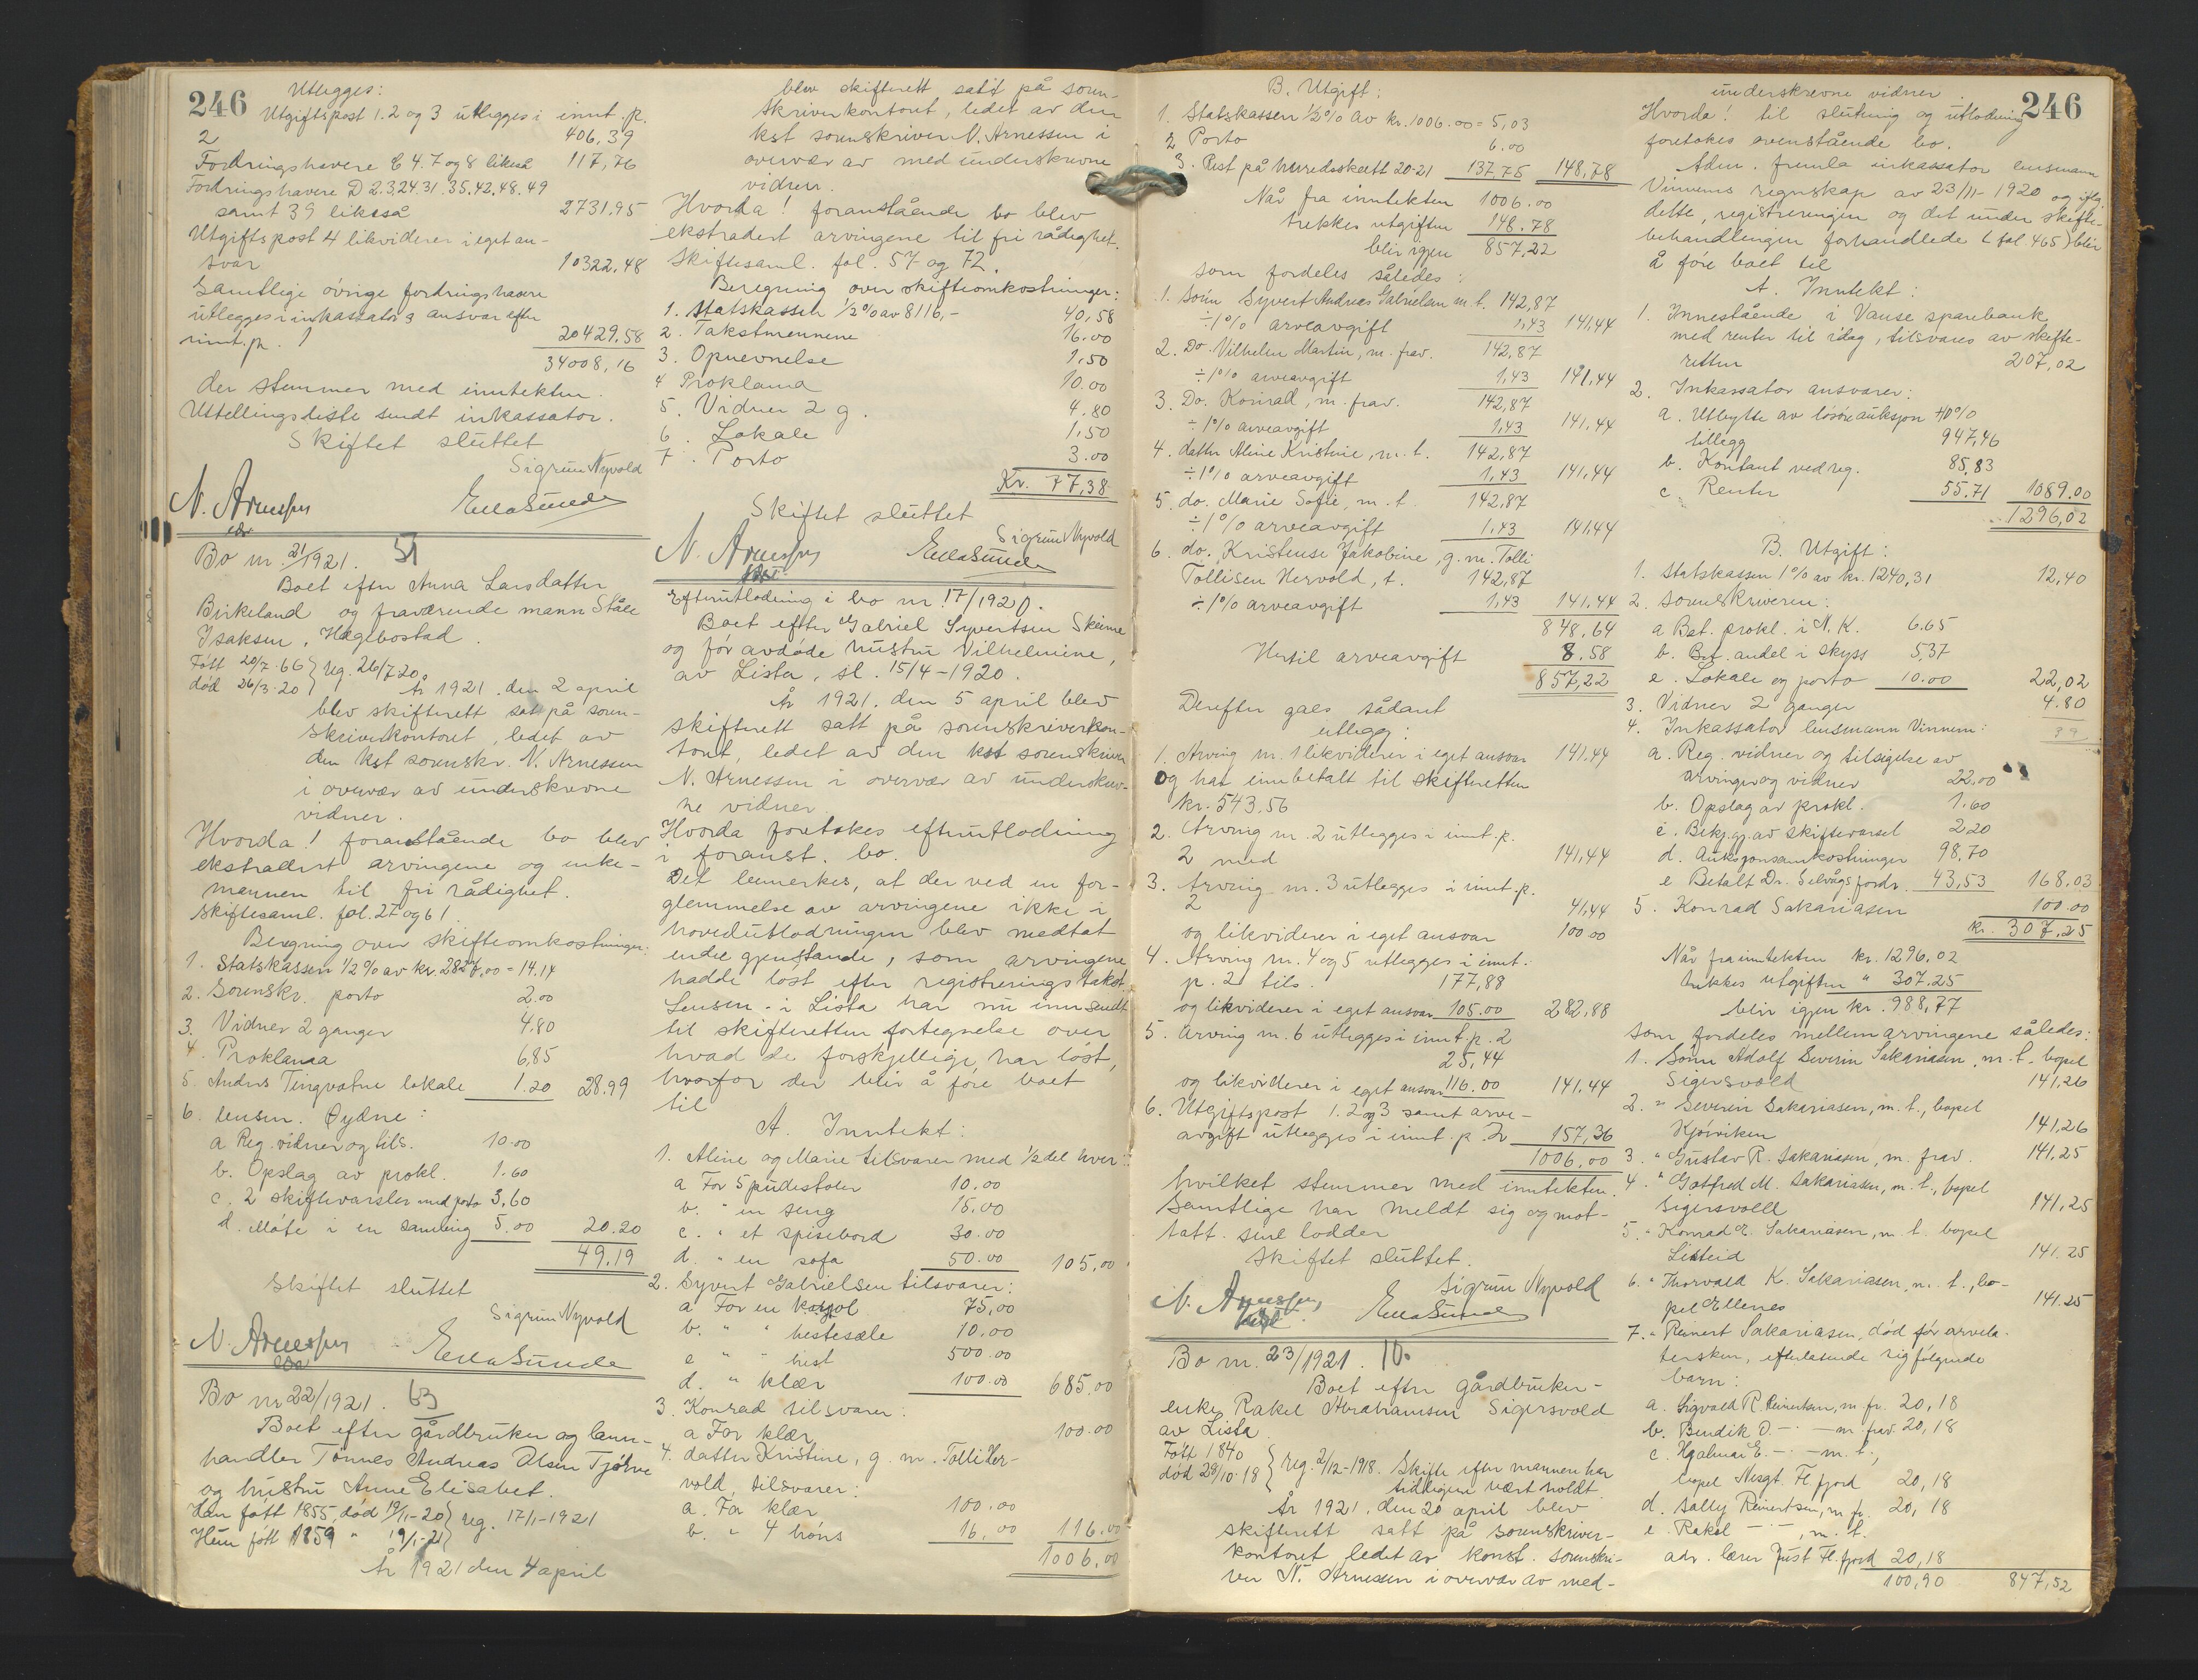 246
Utlegges:
Utgiftspost 1. 2 og 3 utlegges i innt. p.
2 406,39
Fordringshavere C 4. 7 og 8 likeså 117,76
Fordringshavere D 2.3.24.31.35.42.48.49
samt 39 likeså 2731.95
Utgiftspost 4 likviderer i eget an-
svar 10322,48
Samtlige øvrige fordringshavere
utlegges i inkassators ansvar efter
innt. p. 1 20429.58
34008,16
der stemmer med inntekten.
Utstellingsliste sendt inkassator.
Skiftet sluttet
Sigrun Nyvold
N. Arnessen
Ella Sunde
Bo nr. 21/1921. 51
Boet efter Anna Larsdatter
Birkeland og fraværende mann Ståle
Isaksen, Hægebostad.
Født 20/7-66 } reg. 26/7 20
død 26/3-20
År 1921. den 2 april
blev skifterett satt på soren-
skriverkontoret, ledet av
den kst sorenskr. N. Arnessen
i overvær av underskrevne
vidner.
Hvorda! foranstående bo blev
ekstradert arvingene og enke-
mannen til fri rådighet.
Skiftesaml. fol. 27 og 61.
Beregning over skifteomkostninger:
1. Statskassen 1/2 % av kr. 2827,00 = 14.14
2. Sorenskr. porto 2.00
3. Vidner 2 ganger 4.80
4. Proklama 6,85
5. Anders Tingvatne lokale 1.20 28.99
6. lensm. Øydne:
a Reg. vidner og tils. 10.00
b. Opslag av prokl. 1.60
c. 2 skiftevarsler med porto 3,60
d. Møte i en samling 5.00 20.20
49.19
Skiftet sluttet
Sigrun Nyvold
N. Arnessen
Ella Sunde
Bo nr 22/1921. 63
Boet efter gårdbruker og lann-
handler Tønnes Andreas Olsen Tjørve
og hustru Anne Elisabet.
Han født 1855, død 19/11-20 } reg. 17/1-1921
Hun født 1859 " 19/1-21
År 1921 den 4 april
blev skifterett satt på soren-
skriverkontoret, ledet av den
kst sorenskriver N. Arnessen i
overvær av med underskrevne
vidner.
Hvorda! foranstående bo blev
ekstradert arvingene til fri rådighet.
Skiftesaml. fol. 57 og 72.
Beregning over skifteomkostninger:
1. Statskassen 1/2 % av 8116,- 40,58
2. Takstmennene 16.00
3. Opnevnelse 1,50
4 Proklama 10.00
5. Vidner 2 g. 4.80
6. Lokale 1,50
7. Porto 3.00
Kr. 77,38
Skiftet sluttet
Sigrun Nyvold
N. Arnessen
Ella Sunde
Efterutlodning i bo nr. 17/1920.
Boet efter Gabriel Syvertsen Skeime
og før avdøde hustru Vilhelmine,
av Lista, sl. 15/4-1920.
År 1921. den 5 april blev
skifterett satt på sorenskriverkon-
toret, ledet av den kst sorenskriver
N. Arnessen i overvær av underskrev-
ne vidner.
Hvorda foretokes efterutlodning
i foranst. bo.
Det bemerkes, at der ved en for-
glemmelse av arvingene ikke i
hovedutlodningen blev medtat
endel gjenstande, som arvingene
hadde løst efter registreringstakst.
Lensm. i Lista har nu innsendt
til skifteretten fortegnelse over
hvad de forskjellige har løst,
hvorfor der blir å føre boet
til
A. Inntekt:
1. Aline og Marie tilsvarer med 1/2 del hver:
a For 5 pudestoler 10.00
b. " en seng 15.00
c. " et spisebord 30.00
d. " en sofa 50.00 105,00
2. Syvert Gabrielsen tilsvarer:
a For en karjol 75,00
b. " " hestesæle 10.00
c " " hest 500.00
d. " klær 100.00 685,00
3. Konrad tilsvarer:
a For klær 100.00
4. datter Kristine, g. m. Tolli Her-
vold, tilsvarer:
a. For klær 100.00
b. " 4 høns 16.00 116,00
1006,00
B. Utgift:
1. Statskassen 1/2 % av kr. 1006.00 = 5,03
2 Porto 6.00
3. Rest på herredsskatt 20-21 137.75 148,78
Når fra inntekten 1006.00
trekkes utgiften 148.78
blir igjen 857,22
som fordeles således:
1. Sønn Syvert Andreas Gabrielsen m. t. 142,87
÷ 1% arveavgift 1,43 141,44
2. Do. Vilhelm Martin, m. frav. 142,87
÷ 1% arveavgift 1,43 141,44
3. Do. Konrad, m. frav. 142,87
÷ 1% arveavgift 1,43 141,44
4. datter Aline Kristine, m. t. 142,87
÷ 1% arveavgift 1,43 141,44
5. do. Marie Sofie, m. t. 142,87
÷ 1% arveavgift 1,43 141,44
6. do. Kristense Jakobine, g. m. Tolli
Tollisen Hervold, t. 142,87
÷ 1% arveavgift 1,43 141,44
848,64
Hertil arveavgift 8.58
857,22
Derefter gaes sådant
utlegg:
1. Arving nr. 1 likviderer i eget ansvar 141,44
og har innbetalt til skifteretten
kr. 543.56
2. Arving nr. 2 utlegges i innt. p.
2 med 141,44
3. Arving nr. 3 utlegges i innt. p.
2 41,44
og likviderer i eget ansvar 100.00
4. Arving nr. 4 og 5 utlegges i innt.
p. 2 tils. 177,88
og likviderer i eget ansvar 105.00 282,88
5. Arving nr. 6 utlegges i innt. p. 2
25,44
og likviderer i eget ansvar 116.00 141,44
6. Utgiftspost 1. 2 og 3 samt arve-
avgift utlegges i innt. p. 2 157,36
1006,00
hvilket stemmer med inntekten.
Samtlige har meldt sig og mot-
tatt sine lodder
Skiftet sluttet.
Sigrun Nyvold
N. Arnessen
Ella Sunde
Bo nr. 23/1921. 10.
Boet efter gårdbruker-
enke Rakel Abrahamsen Sigersvold
av Lista
Født 1840 } reg. 2/12-1918. Skifte efter mannen har
død 28/10-18 tidligere vært holdt.
År 1921. den 20 april blev
skifterett satt på sorenskriver-
kontoret ledet av konst. sorenskri-
ver N. Arnessen i overvær av med-
246
underskrevne vidner.
Hvorda! til slutning og utlodning
foretokes ovenstående bo.
Adm. fremla inkassator lensmann
Vinnems regnskap av 23/11-1920 og iflg.
dette, registreringen og det under skifte-
behandlingen forhandlede (fol. 465) blir
å føre boet til
A. Inntekt:
1. Innestående i Vanse sparebank
med renter til idag, tilsvares av skifte-
retten 207,02
2. Inkassator ansvarer:
a. Utbytte av løsøreauksjon + 10%
tillegg 947,46
b. Kontant ved reg. 85,83
c. Renter 55.71 1089.00
1296,02
B. Utgift:
1. Statskassen 1% av kr. 1240,31 12,40
2. Sorenskriveren:
a Bet. prokl. i N. K. 6.65
b. Bet. andel i skyss 5,37
c. Lokale og porto 10.00 22,02
3. Vidner 2 ganger 4.80
4. Inkassator lensmann Vinnem:
a. Reg. vidner og tilsigelse av
arvinger og vidner 22,00
b. Opslag av prokl. 1.60
c. Bekj.gj. av skiftevarsel 2.20
d. Auksjonsomkostninger 98,70
e Betalt Dr. Selvågs fordr. 43,53 168,03
5. Konrad Sakariasen 100.00
kr. 307,25
Når fra inntekten kr. 1296,02
trekkes utgiften " 307.25
blir igjen kr. 988,77
som fordeles mellem arvingene således:
1. Sønn Adolf Severin Sakariasen, m. t., bopel
Sigersvold 141,26
2. " Severin Sakariasen, m. t., bopel
Kjørviken 141,26
3. " Gustav R. Sakariasen, m. frav. 141.25
4. " Gotfred M. Sakariasen, m. t., bopel
Sigersvold 141,25
5. " Konrad E. Sakariasen, m. t. bopel
Listeid 141.25
6. " Thorvald K. Sakariasen, m. t., bo-
pel Ellenes 141.25
7. " Reinert Sakariasen, død før arvela-
tersken, efterlatende sig følgende
barn:
a. Sigvald R. Reinertsen, m. fr. 20,18
b. Bendik O. -"- m frav. 20,18
c. Hjalmar E. -"- m. t.,
bopel Nesgt. Fl.fjord 20,18
d. Sally Reinertsen, m. fr. 20,18
e. Rakel -"-, m. t.
adr. lærer Just Fl.fjord 20,18
100,90 847,52